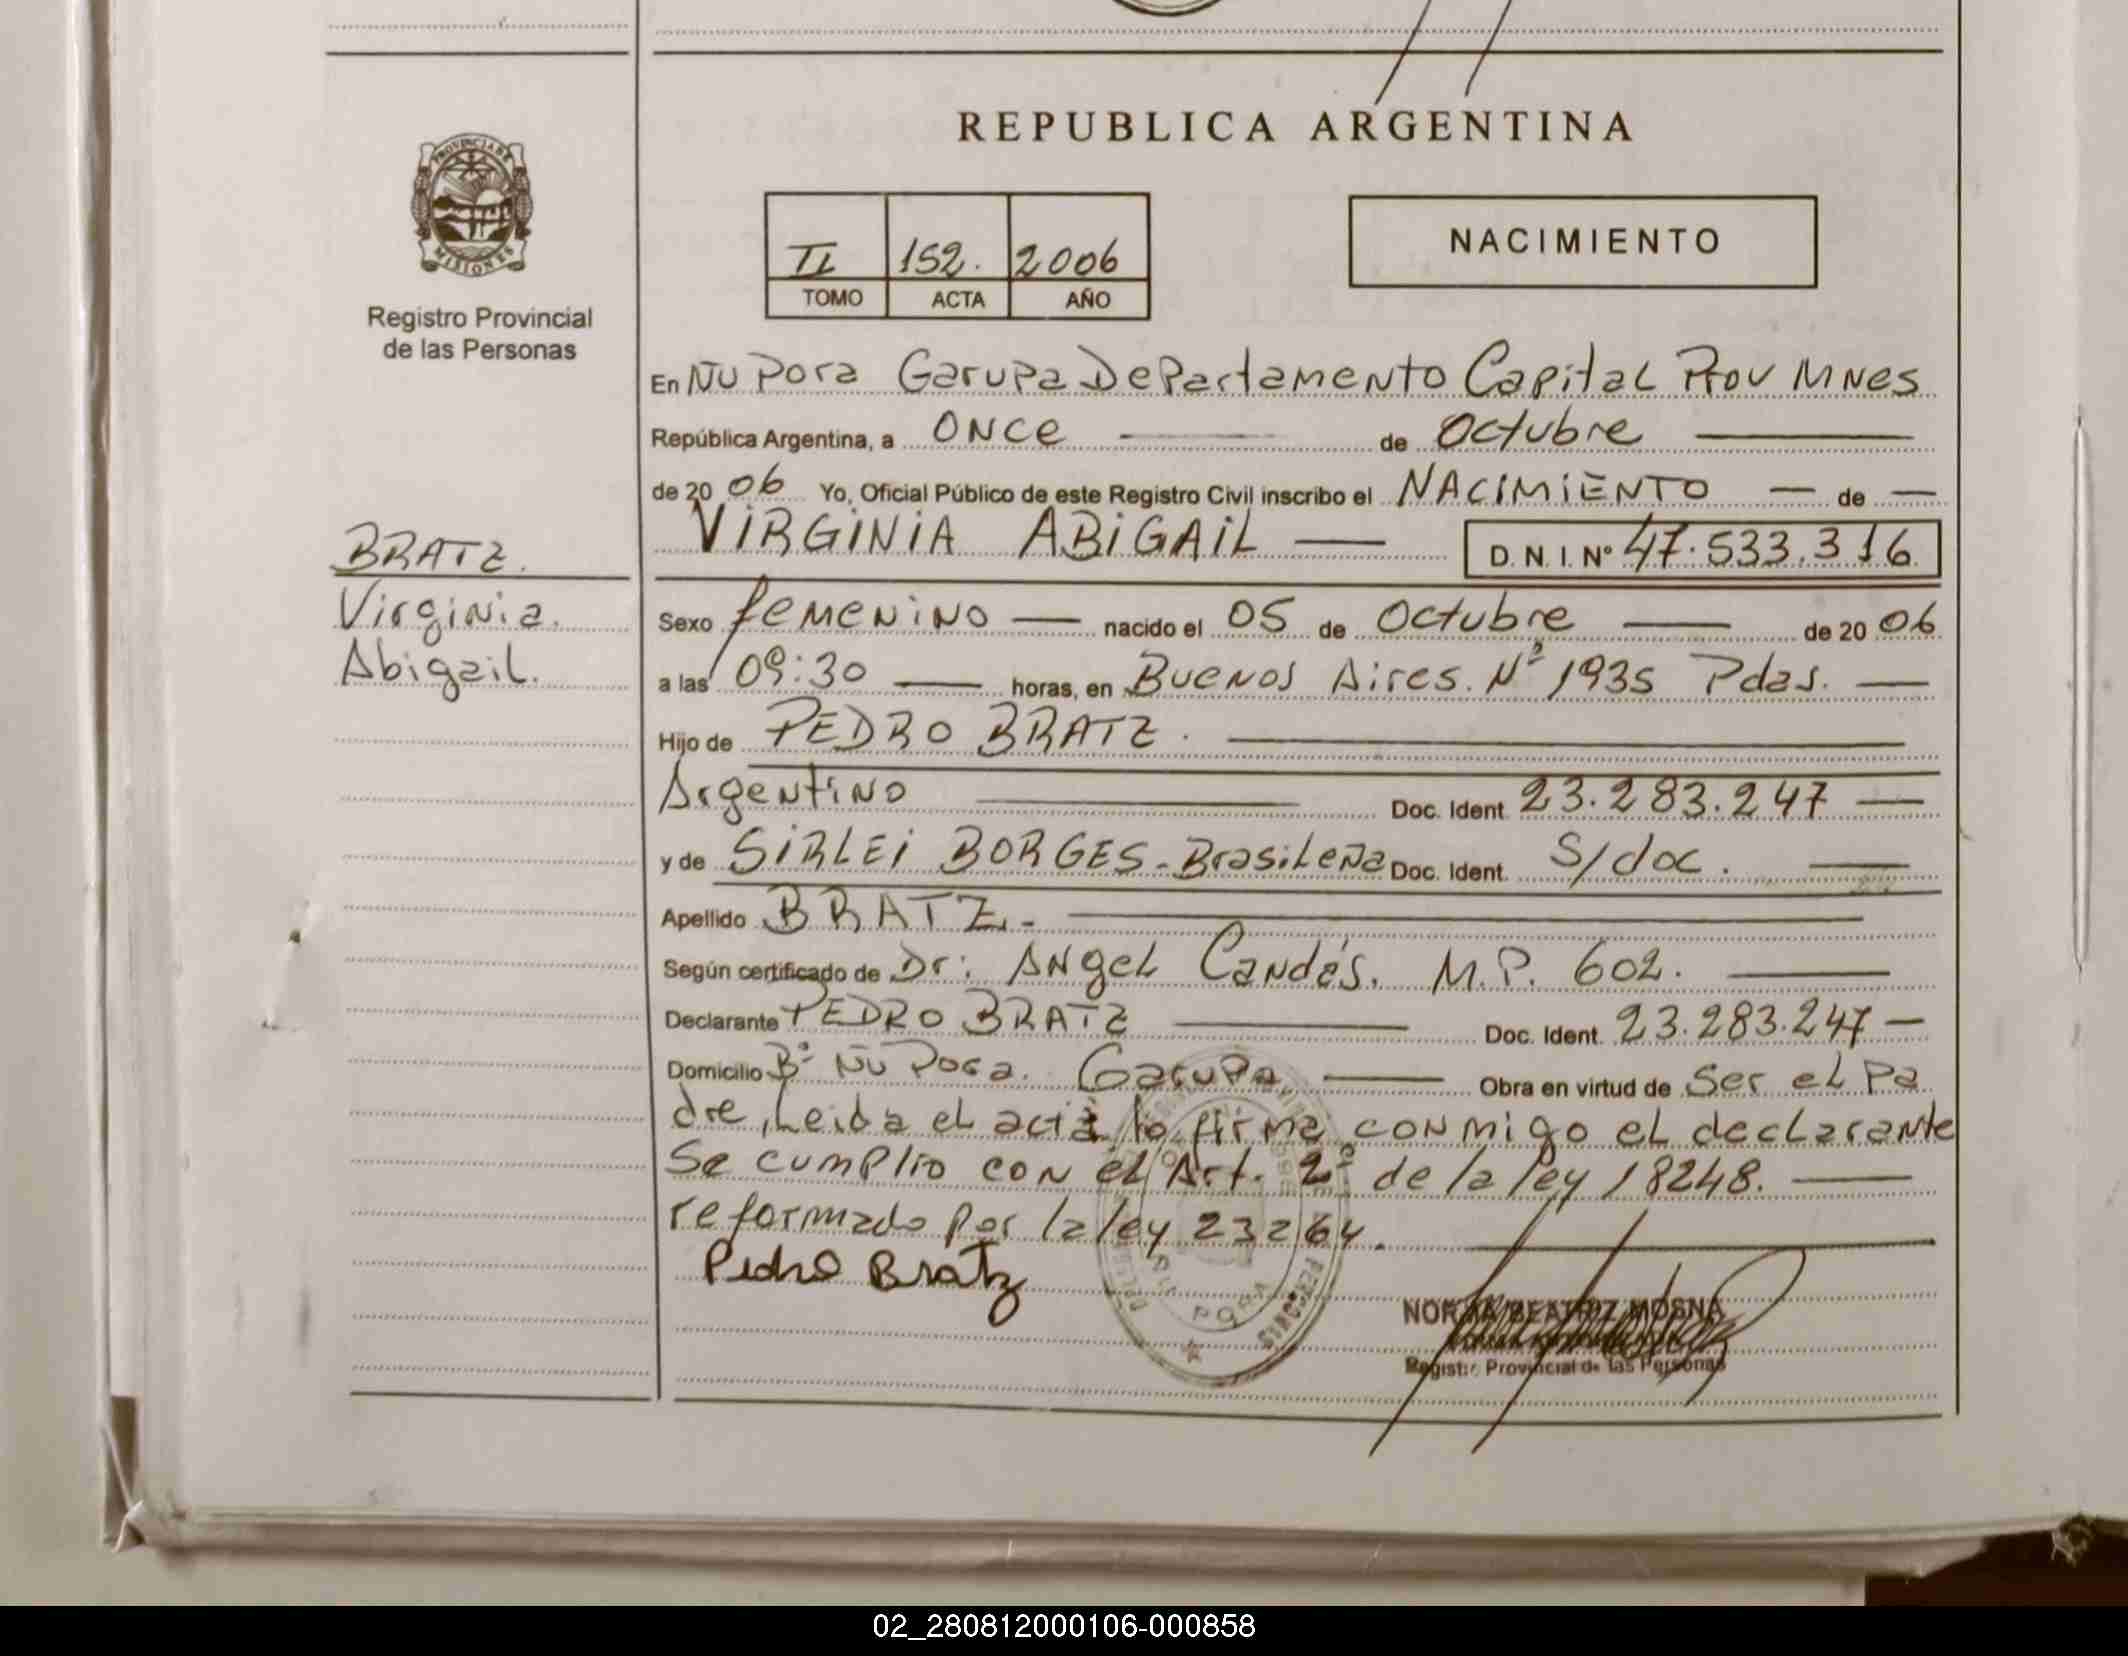 REPUBLICA ARGENTINA
PROVINCIA DE
MISIONES
Registro Provincial
de las Personas
II 152. 2006
TOMO ACTA AÑO
NACIMIENTO
En Ñu Pora Garupa Departamento Capital Prov Mnes
República Argentina, a Once de Octubre
de 2006 Yo, Oficial Público de este Registro Civil inscribo el NACIMIENTO — de —
VIRGINIA ABIGAIL — D. N. I. Nº 47.533.316
BRATZ.
Virginia.
Abigail.
Sexo femenino — nacido el 05 de Octubre — de 2006
a las 09:30 — horas, en Buenos Aires. Nº 1935 Pdas. —
Hijo de PEDRO BRATZ.
Argentino Doc. Ident. 23.283.247 —
y de SIRLEI BORGES - Brasileña Doc. Ident. S/doc. —
Apellido BRATZ.-
Según certificado de Dr: Angel Candés. M.P. 602. —
Declarante PEDRO BRATZ — Doc. Ident. 23.283.247 —
Domicilio Bº Ñu Pora. Garupa — Obra en virtud de Ser el Pa
dre, Leida el acta la firma conmigo el declarante
Se cumplio con el Art. 2º de la ley 18248. —
reformado por la ley 23264.
Pedro Bratz
NORMA BEATRIZ MOSNA
Registro Provincial de las Personas
02_280812000106-000858